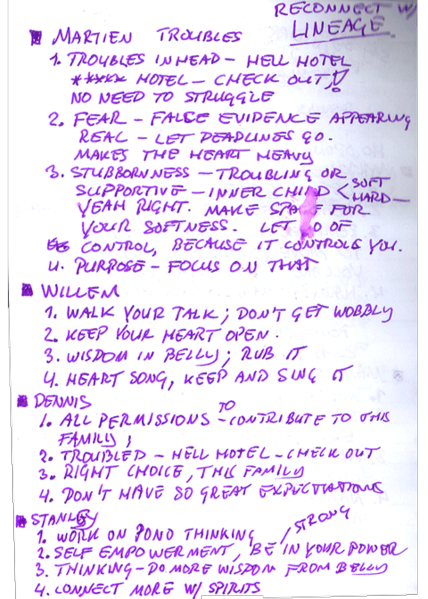 RECONNECT W/
LINEAGE.
MARTIEN TROUBLES
1. TROUBLES IN HEAD – HELL HOTEL
**** HOTEL – CHECK OUT!!
NO NEED TO STRUGGLE
2. FEAR – FALSE EVIDENCE APPEARING
REAL – LET DEADLINES GO.
MAKES THE HEART HEAVY
3. STUBBORNNESS – TROUBLING OR
SUPPORTIVE – INNER CHILD < SOFT
HARD –
YEAH RIGHT. MAKE SPACE FOR
YOUR SOFTNESS. LET GO OF
CONTROL, BECAUSE IT CONTROLS YOU.
4. PURPOSE – FOCUS ON THAT
WILLEM
1. WALK YOUR TALK; DON'T GET WOBBLY
2. KEEP YOUR HEART OPEN.
3. WISDOM IN BELLY; RUB IT
4. HEART SONG, KEEP AND SING IT
DENNIS
1. ALL PERMISSIONS – TO CONTRIBUTE TO THIS
FAMILY;
2. TROUBLED – HELL HOTEL – CHECK OUT
3. RIGHT CHOICE, THIS FAMILY
4. DON'T HAVE SO GREAT EXPECTATIONS
STANLEY
1. WORK ON POND THINKING / STRONG
2. SELF EMPOWERMENT, BE IN YOUR POWER
3. THINKING – DO MORE WISDOM FROM BELLY
4. CONNECT MORE W/ SPIRITS